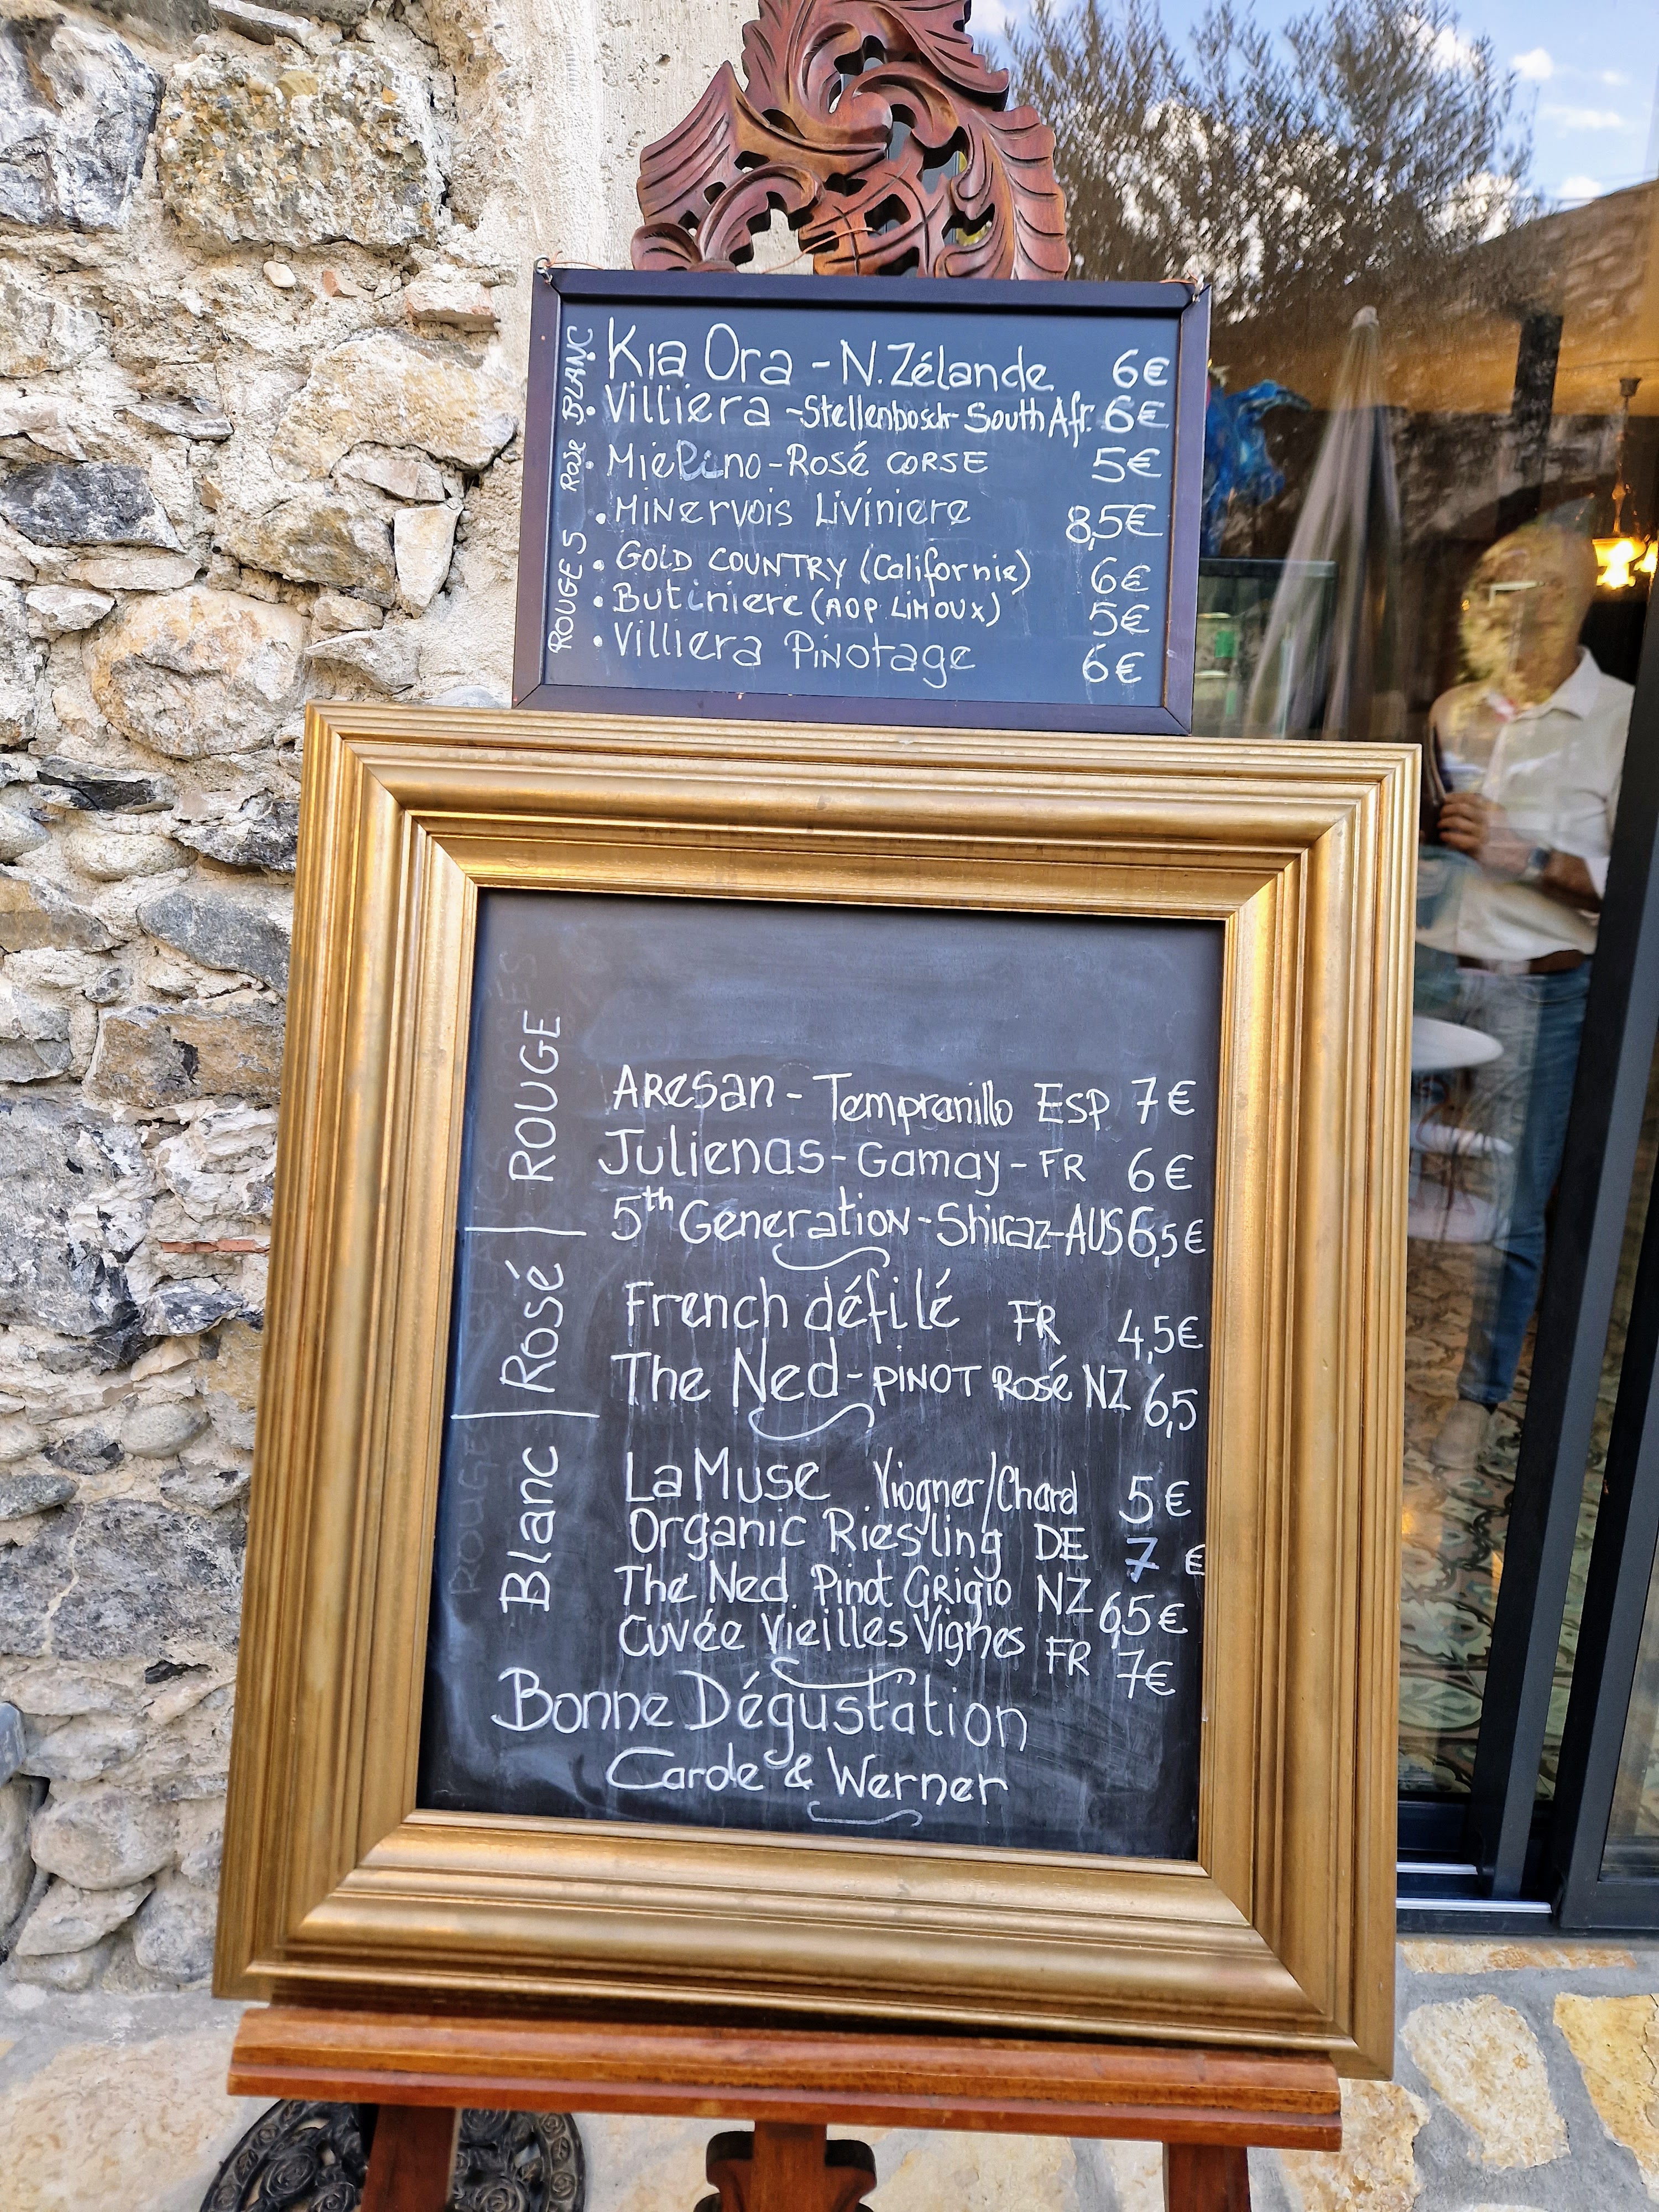 BLANC
Kia Ora - N.Zélande 6€
Villiera - Stellenbosch - South Afr. 6€
Rosé
Mielino - Rosé CORSE 5€
ROUGES
Minervois Liviniere 8,5€
GOLD COUNTRY (Californie) 6€
Butiniere (AOP LIMOUX) 5€
Villiera Pinotage 6€
ROUGE
Aresan - Tempranillo Esp 7€
Julienas - Gamay - FR 6€
5th Generation - Shiraz - AUS 6,5€
Rosé
French défilé FR 4,5€
The Ned - PINOT Rosé NZ 6,5
Blanc
La Muse Viogner/Chard 5€
Organic Riesling DE 7 €
The Ned. Pinot Grigio NZ 6,5€
Cuvée Vieilles Vignes FR 7€
Bonne Dégustation
Carole & Werner